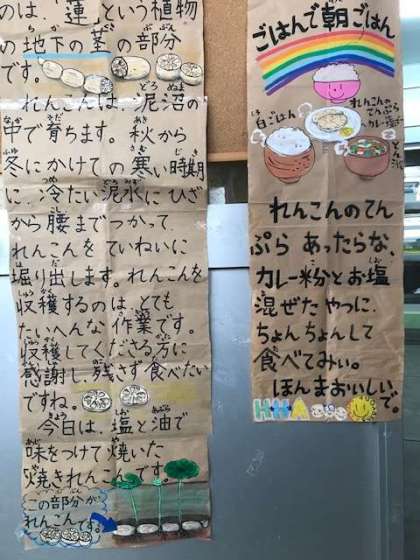 のは、「蓮」という植物
の地下の茎の部分
です。
れんこんは、泥沼の
中で育ちます。秋から
冬にかけての寒い時期
に、冷たい泥水にひざ
から腰までつかって、
れんこんをていねいに
掘り出します。れんこんを
収穫するのは、とても
たいへんな作業です。
収穫してくださる方に
感謝し、残さず食べたい
ですね。
今日は、塩と油で
味をつけて焼いた
焼きれんこんです。
この部分が
れんこんです。
ごはんで朝ごはん
白ごはん
れんこんの
てんぷら
カレー塩
れんこんのてん
ぷらあったらな、
カレー粉とお塩
混ぜたやつに、
ちょんちょんして
食べてみぃ。
ほんまおいしいで。